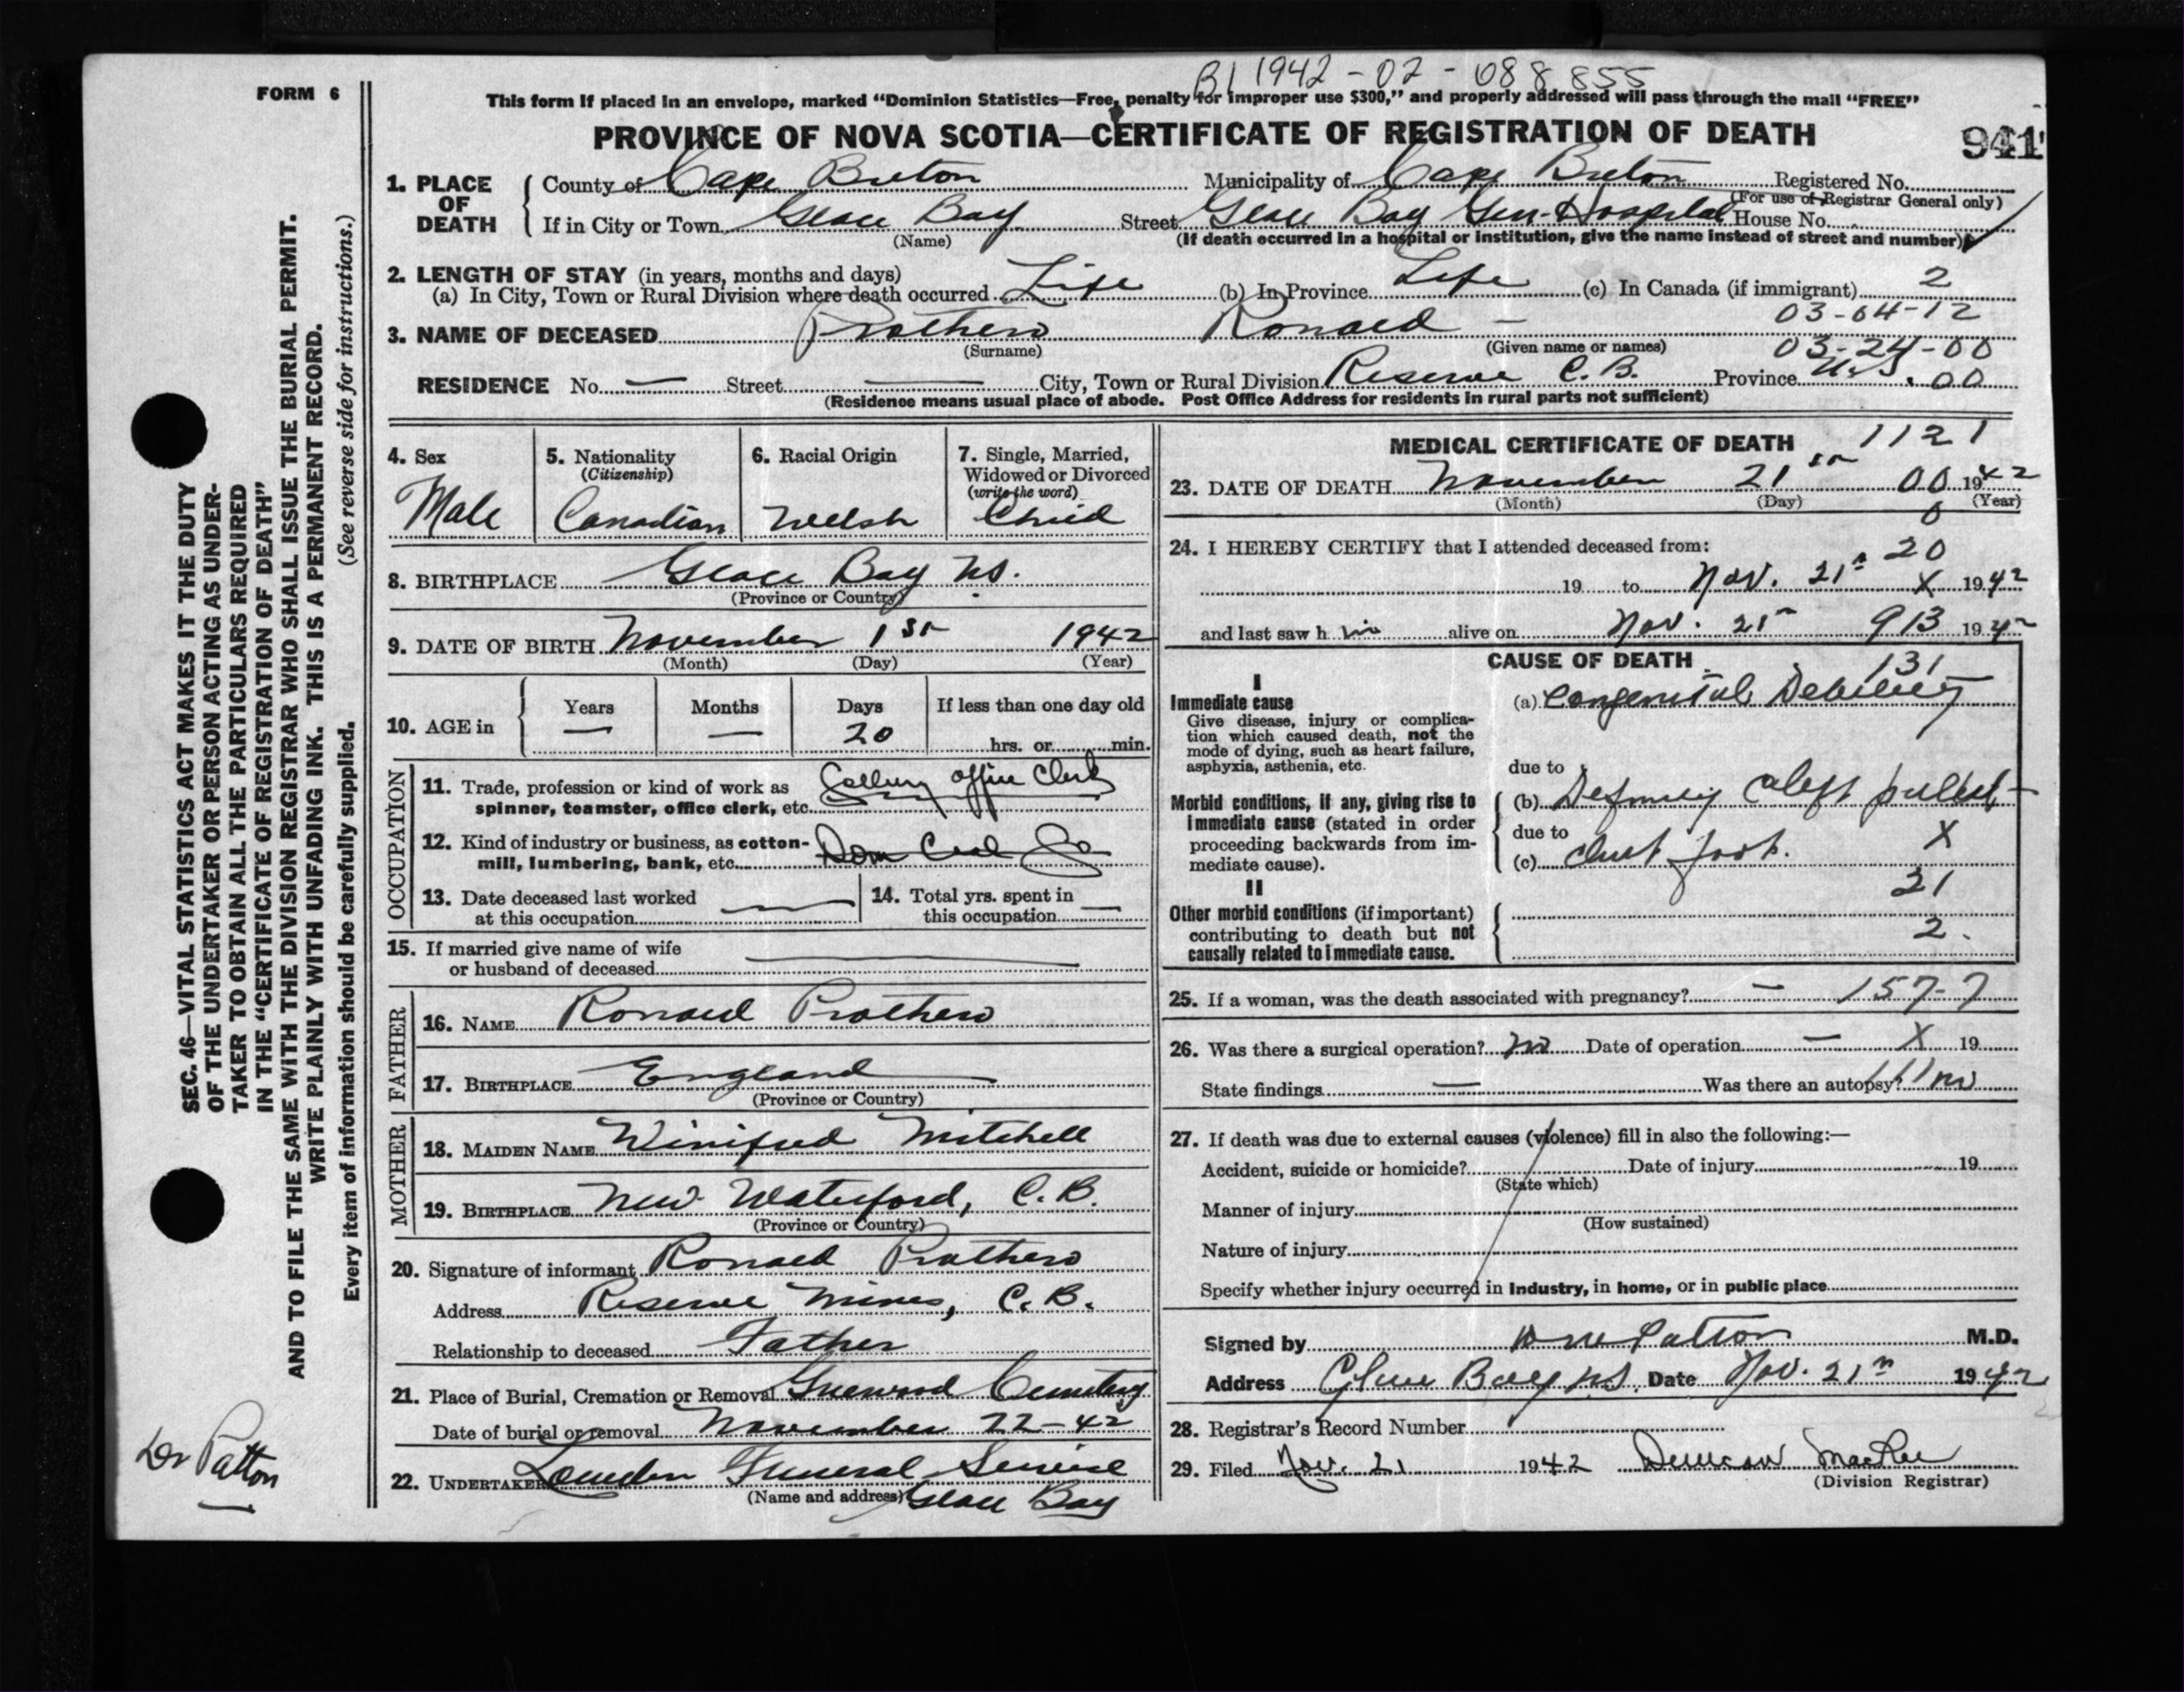 B1 1942-02-088855
FORM 6
This form if placed in an envelope, marked “Dominion Statistics—Free, penalty for improper use $300,” and properly addressed will pass through the mail “FREE”
PROVINCE OF NOVA SCOTIA—CERTIFICATE OF REGISTRATION OF DEATH
941
1. PLACE OF DEATH
County of Cape Breton Municipality of Cape Breton Registered No.
(For use of Registrar General only)
If in City or Town Glace Bay Street Glace Bay Gen-Hospital House No.
(Name) (If death occurred in a hospital or institution, give the name instead of street and number)
2. LENGTH OF STAY (in years, months and days)
(a) In City, Town or Rural Division where death occurred Life (b) In Province Life (c) In Canada (if immigrant) 2
03-04-12
3. NAME OF DECEASED Prothero Ronald –
(Surname) (Given name or names) 03-24-00
RESIDENCE No. — Street — City, Town or Rural Division Reserve C.B. Province N.S. 00
(Residence means usual place of abode. Post Office Address for residents in rural parts not sufficient)
4. Sex
Male
5. Nationality
(Citizenship)
Canadian
6. Racial Origin
Welsh
7. Single, Married,
Widowed or Divorced
(write the word)
Child
8. BIRTHPLACE Glace Bay N.S.
(Province or Country)
9. DATE OF BIRTH November 1st 1942
(Month) (Day) (Year)
10. AGE in
Years Months Days If less than one day old
— — 20 hrs. or min.
OCCUPATION
11. Trade, profession or kind of work as
spinner, teamster, office clerk, etc. Colliery office Clerk
12. Kind of industry or business, as cotton-
mill, lumbering, bank, etc. Dom Coal Co
13. Date deceased last worked
at this occupation —
14. Total yrs. spent in
this occupation —
15. If married give name of wife
or husband of deceased —
FATHER
16. NAME Ronald Prothero
17. BIRTHPLACE England
(Province or Country)
MOTHER
18. MAIDEN NAME Winifred Mitchell
19. BIRTHPLACE New Waterford, C.B.
(Province or Country)
20. Signature of informant Ronald Prothero
Address Reserve Mines, C.B.
Relationship to deceased Father
21. Place of Burial, Cremation or Removal Greenwood Cemetery
Date of burial or removal November 22-42
22. UNDERTAKER Funeral Service
(Name and address) Glace Bay
MEDICAL CERTIFICATE OF DEATH 1121
23. DATE OF DEATH November 21st 00 1942
(Month) (Day) (Year)
0
24. I HEREBY CERTIFY that I attended deceased from: 20
19 to Nov. 21st X 1942
and last saw him alive on Nov. 21st 913 1942
CAUSE OF DEATH
131
I
Immediate cause
Give disease, injury or complica-
tion which caused death, not the
mode of dying, such as heart failure,
asphyxia, asthenia, etc.
(a) Congenital Debility
due to
Morbid conditions, if any, giving rise to
immediate cause (stated in order
proceeding backwards from im-
mediate cause).
(b) cleft
due to X
(c) foot.
21
II
Other morbid conditions (if important)
contributing to death but not
causally related to immediate cause.
2.
25. If a woman, was the death associated with pregnancy? — 157-7
26. Was there a surgical operation? no Date of operation — X 19
State findings — Was there an autopsy? no
27. If death was due to external causes (violence) fill in also the following:—
Accident, suicide or homicide? Date of injury 19
(State which)
Manner of injury
(How sustained)
Nature of injury
Specify whether injury occurred in industry, in home, or in public place
Signed by Patton M.D.
Address Glace Bay N.S. Date Nov. 21st 1942
28. Registrar's Record Number
29. Filed Nov. 21 1942 Duncan MacRae
(Division Registrar)
SEC. 46—VITAL STATISTICS ACT MAKES IT THE DUTY
OF THE UNDERTAKER OR PERSON ACTING AS UNDER-
TAKER TO OBTAIN ALL THE PARTICULARS REQUIRED
IN THE “CERTIFICATE OF REGISTRATION OF DEATH”
AND TO FILE THE SAME WITH THE DIVISION REGISTRAR WHO SHALL ISSUE THE BURIAL PERMIT.
WRITE PLAINLY WITH UNFADING INK. THIS IS A PERMANENT RECORD.
Every item of information should be carefully supplied. (See reverse side for instructions.)
Dr Patton